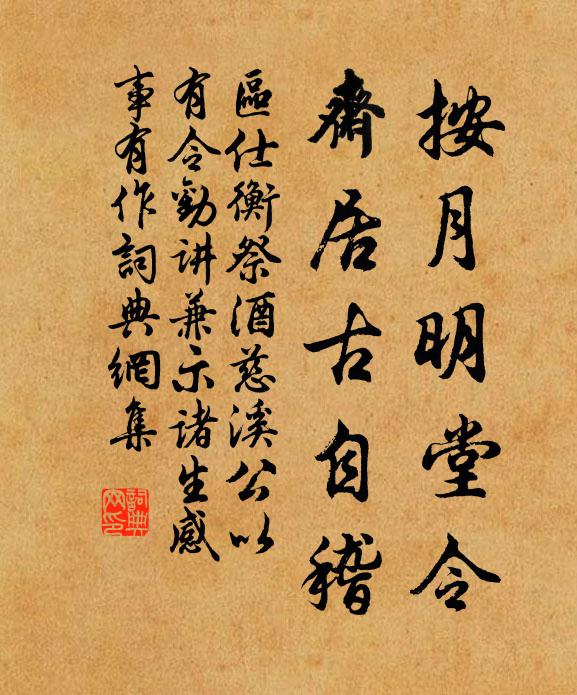 按月明堂令
齋居古自稽
區仕衡祭酒慈溪公以
有令勸讲兼示诸生感
事有作詞典網集
詞典网印